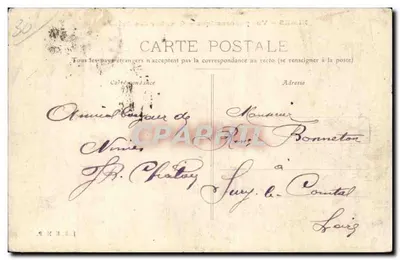 30
CARTE POSTALE
Tous les pays étrangers n'acceptent pas la correspondance au recto (se renseigner à la poste)
Correspondance
Adresse
Amical bonjour de
Nimes
Monsieur
Bonneton
à
Sury-le-Comtal
Loire
CPAPHIL